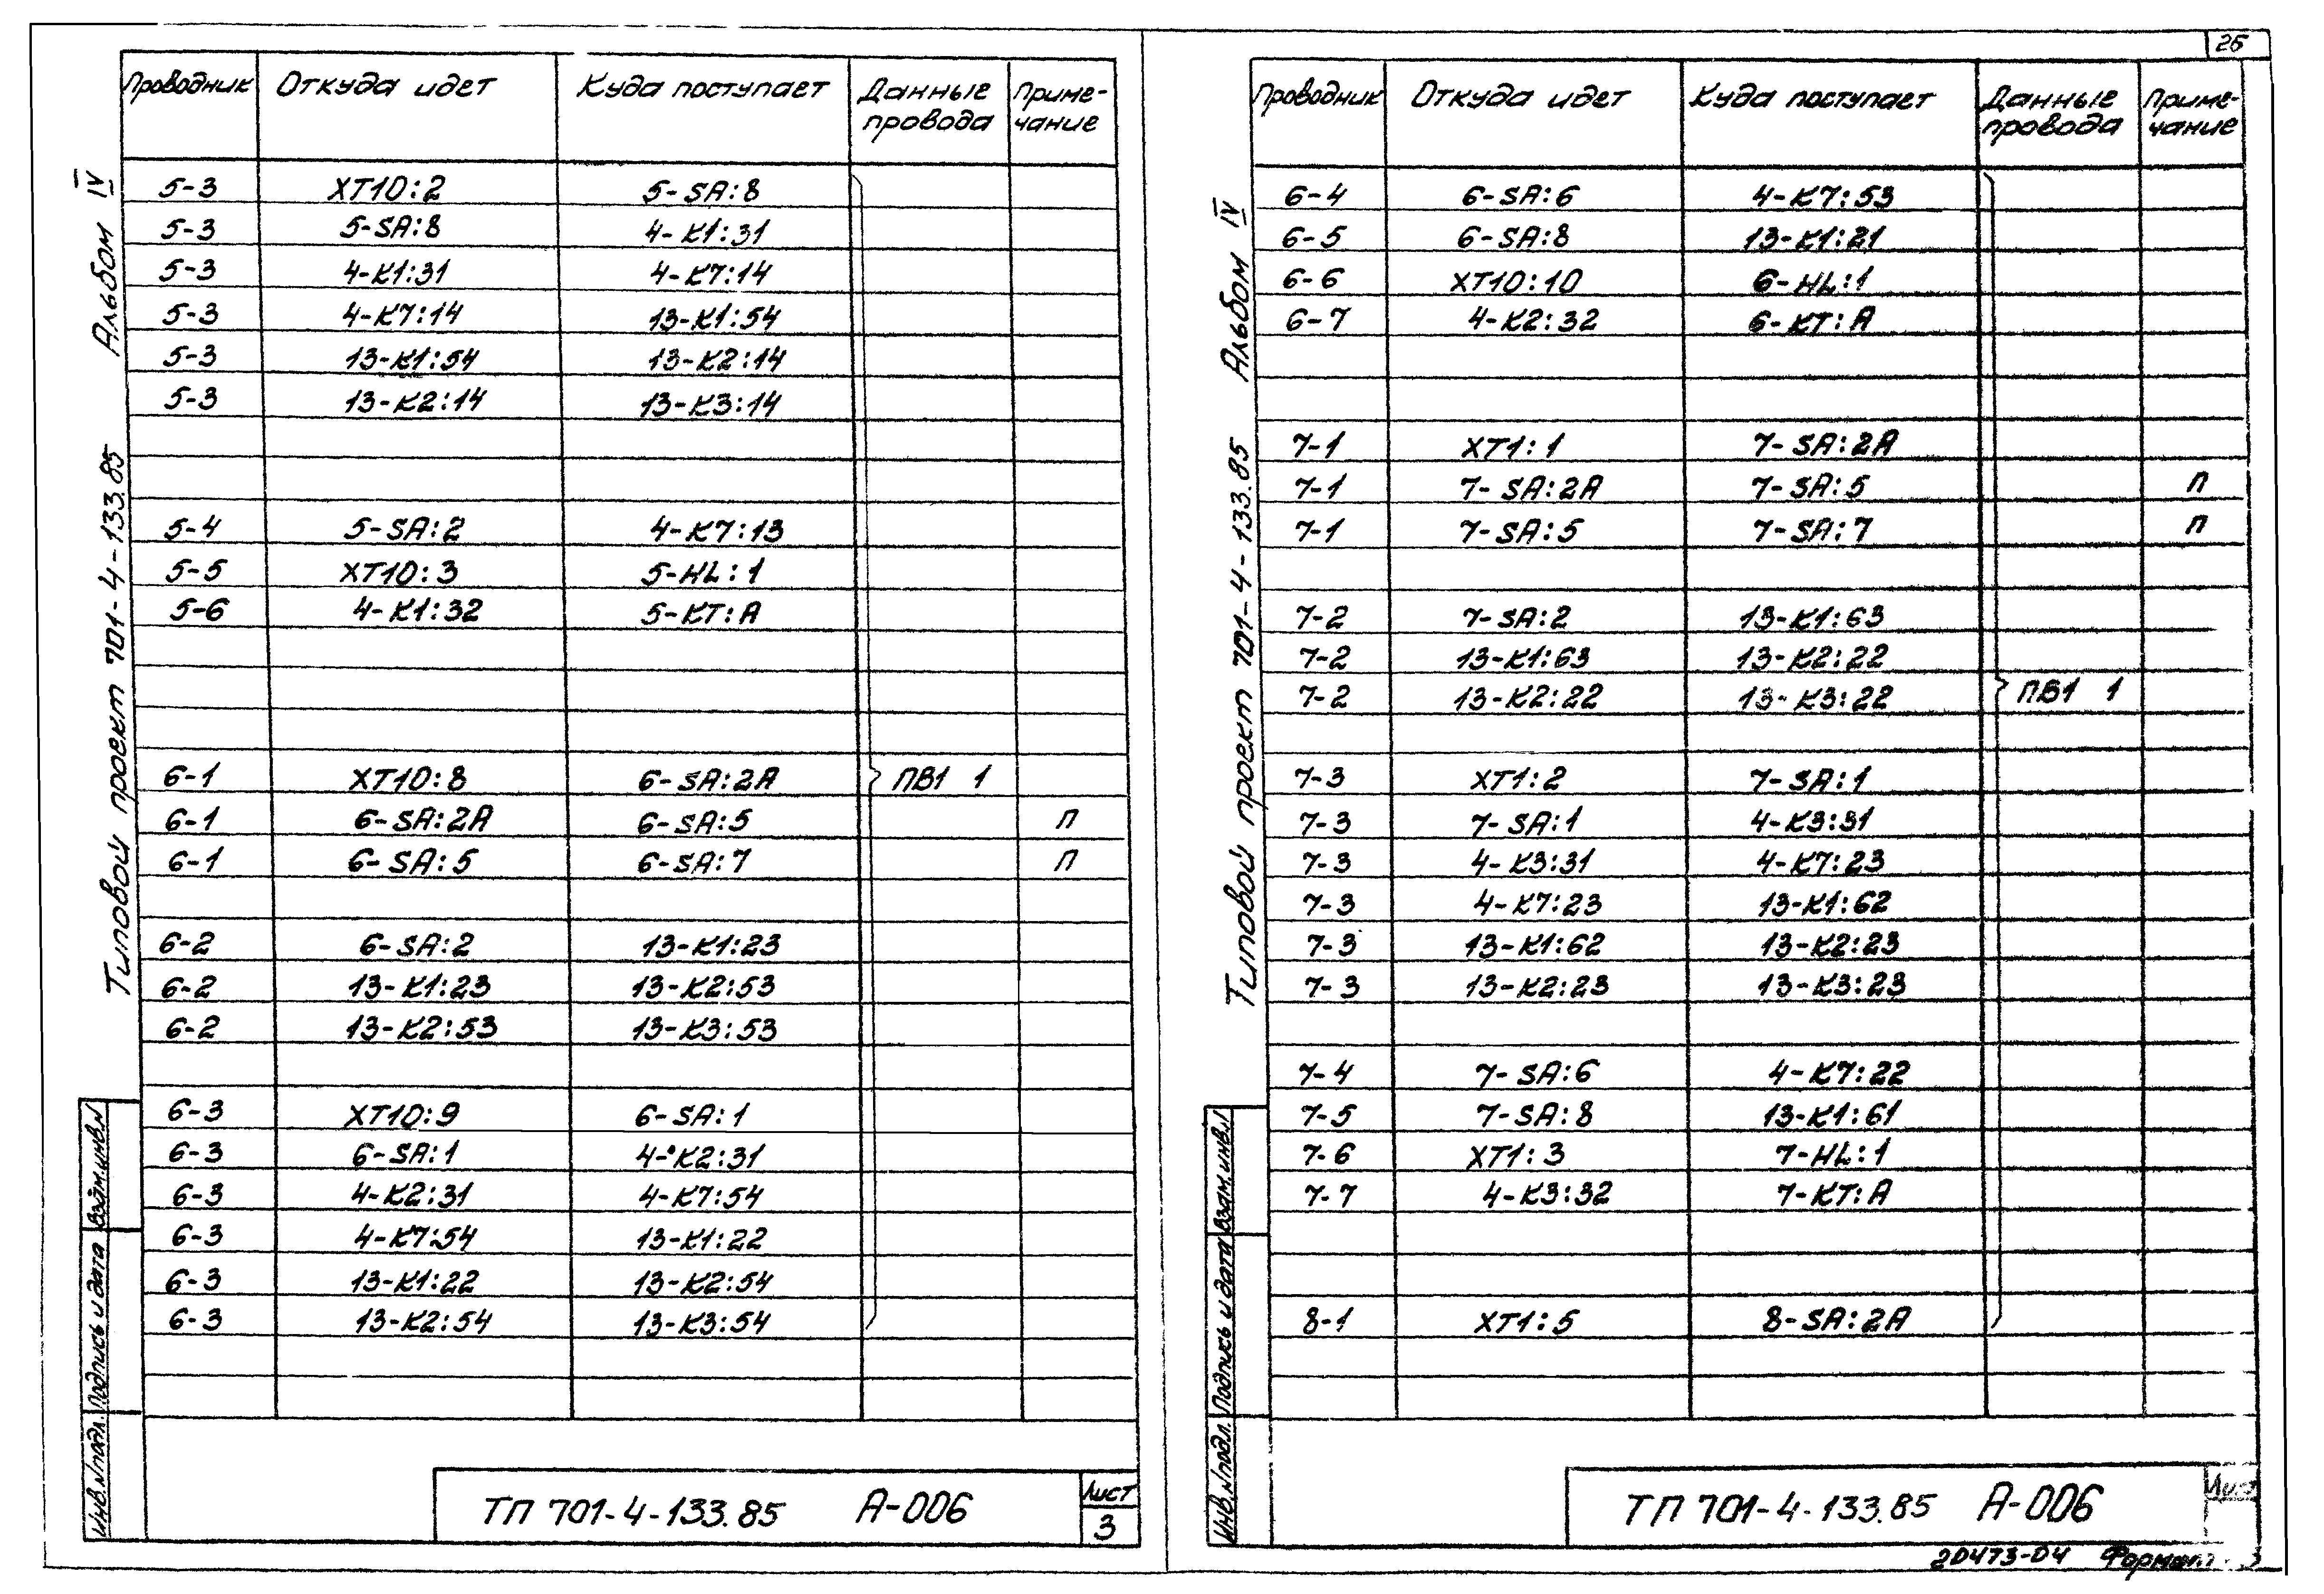 Проводник Откуда идет Куда поступает Данные провода Приме-чание
5-3 XT10:2 5-SA:8
5-3 5-SA:8 4-K1:31
5-3 4-K1:31 4-K7:14
5-3 4-K7:14 13-K1:54
5-3 13-K1:54 13-K2:14
5-3 13-K2:14 13-K3:14
5-4 5-SA:2 4-K7:13
5-5 XT10:3 5-HL:1
5-6 4-K1:32 5-KT:A
6-1 XT10:8 6-SA:2A ПВ1 1
6-1 6-SA:2A 6-SA:5 П
6-1 6-SA:5 6-SA:7 П
6-2 6-SA:2 13-K1:23
6-2 13-K1:23 13-K2:53
6-2 13-K2:53 13-K3:53
6-3 XT10:9 6-SA:1
6-3 6-SA:1 4-K2:31
6-3 4-K2:31 4-K7:54
6-3 4-K7:54 13-K1:22
6-3 13-K1:22 13-K2:54
6-3 13-K2:54 13-K3:54
Типовой проект 701-4-133.85 Альбом IV
Инв.N подл. Подпись и дата Взам.инв.N
ТП 701-4-133.85 А-006
Лист
3
26
Проводник Откуда идет Куда поступает Данные провода Приме-чание
6-4 6-SA:6 4-K7:53
6-5 6-SA:8 13-K1:21
6-6 XT10:10 6-HL:1
6-7 4-K2:32 6-KT:A
7-1 XT1:1 7-SA:2A
7-1 7-SA:2A 7-SA:5 П
7-1 7-SA:5 7-SA:7 П
7-2 7-SA:2 13-K1:63
7-2 13-K1:63 13-K2:22
7-2 13-K2:22 13-K3:22 ПВ1 1
7-3 XT1:2 7-SA:1
7-3 7-SA:1 4-K3:31
7-3 4-K3:31 4-K7:23
7-3 4-K7:23 13-K1:62
7-3 13-K1:62 13-K2:23
7-3 13-K2:23 13-K3:23
7-4 7-SA:6 4-K7:22
7-5 7-SA:8 13-K1:61
7-6 XT1:3 7-HL:1
7-7 4-K3:32 7-KT:A
8-1 XT1:5 8-SA:2A
Типовой проект 701-4-133.85 Альбом IV
Инв.N подл. Подпись и дата Взам.инв.N
ТП 701-4-133.85 А-006
Лист
20473-04 Формат